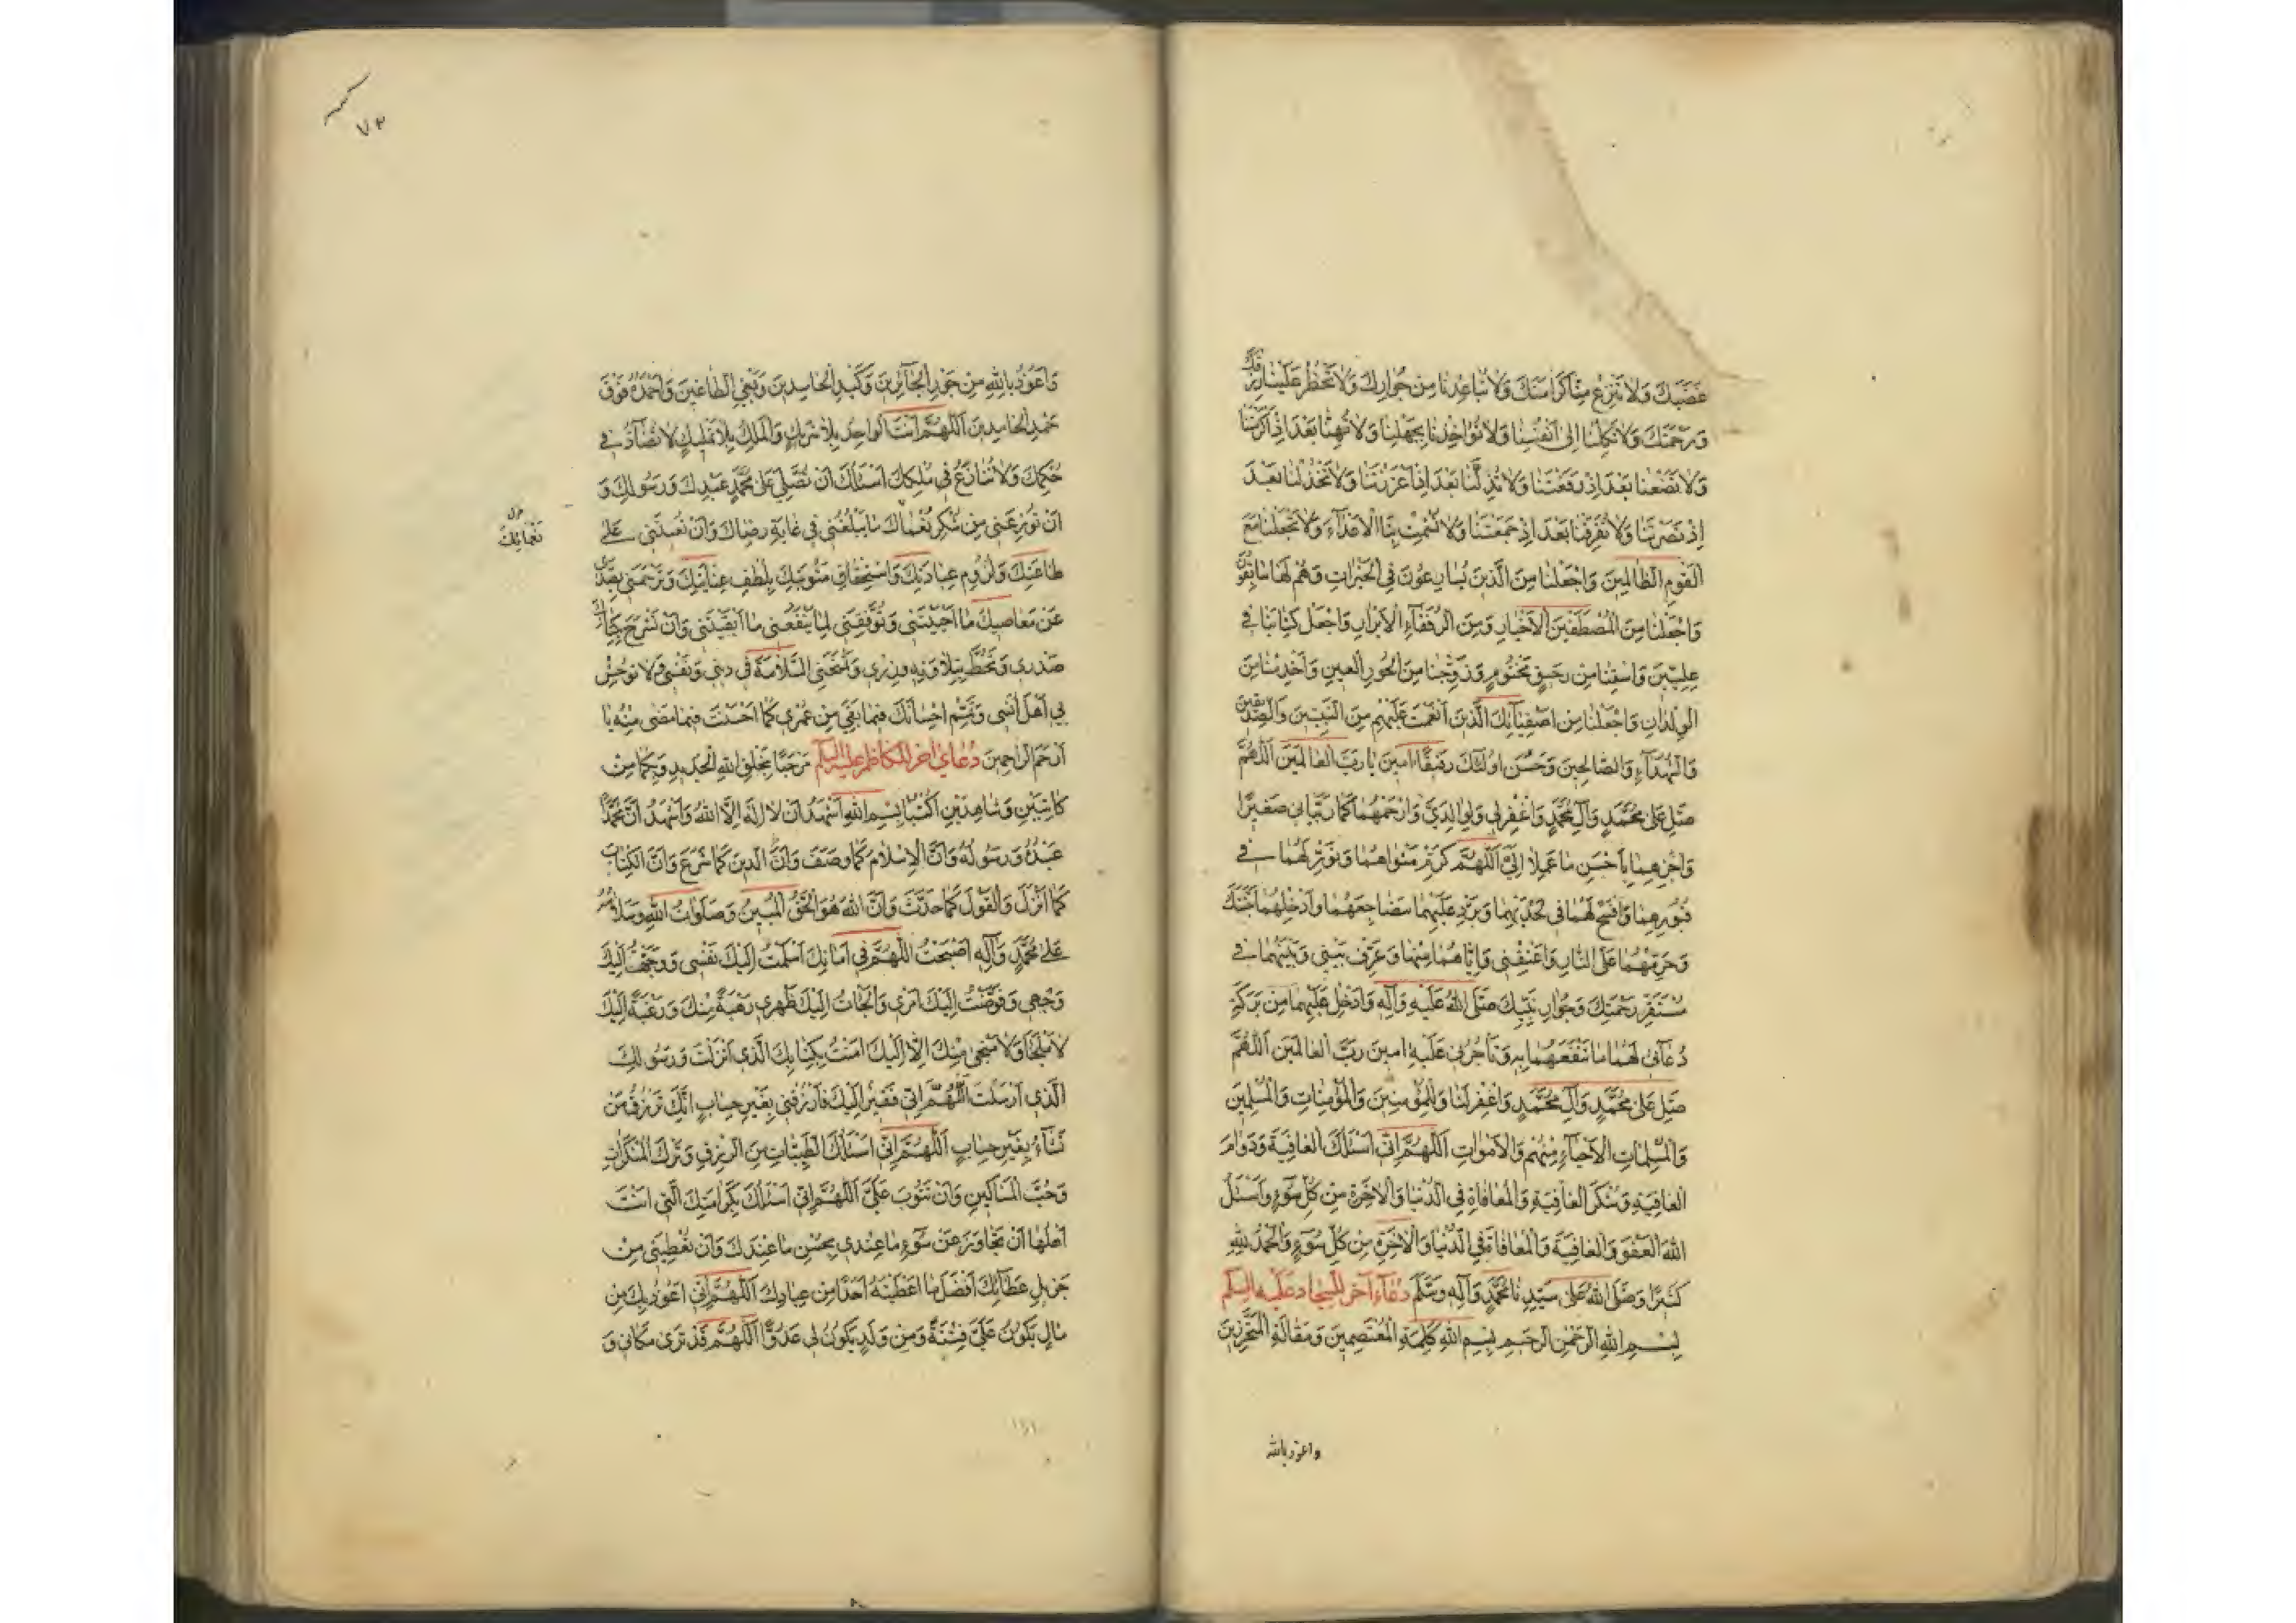 غَضَبَكَ وَلَا تَنْزِعْ مِنَّا كَرَامَتَكَ وَلَا تُبَاعِدْنَا مِنْ جِوَارِكَ وَلَا تَحْظُرْ عَلَيْنَا رِزْقَكَ
وَرَحْمَتَكَ وَلَا تَكِلْنَا إِلَى أَنْفُسِنَا وَلَا تُؤَاخِذْنَا بِجَهْلِنَا وَلَا تُهِنَّا بَعْدَ إِذْ أَكْرَمْتَنَا
وَلَا تَضَعْنَا بَعْدَ إِذْ رَفَعْتَنَا وَلَا تُذِلَّنَا بَعْدَ إِذْ أَعْزَزْتَنَا وَلَا تَخْذُلْنَا بَعْدَ
إِذْ نَصَرْتَنَا وَلَا تُفَرِّقْنَا بَعْدَ إِذْ جَمَعْتَنَا وَلَا تُشْمِتْ بِنَا الْأَعْدَاءَ وَلَا تَجْعَلْنَا مَعَ
الْقَوْمِ الظَّالِمِينَ وَاجْعَلْنَا مِنَ الَّذِينَ يُسَارِعُونَ فِي الْخَيْرَاتِ وَهُمْ لَهَا سَابِقُونَ
وَاجْعَلْنَا مِنَ الْمُصْطَفَيْنَ الْأَخْيَارِ وَمِنَ الرُّفَقَاءِ الْأَبْرَارِ وَاجْعَلْ كِتَابَنَا فِي
عِلِّيِّينَ وَاسْقِنَا مِنْ رَحِيقٍ مَخْتُومٍ وَزَوِّجْنَا مِنَ الْحُورِ الْعِينِ وَأَخْدِمْنَا مِنَ
الْوِلْدَانِ وَاجْعَلْنَا مِنْ أَصْفِيَائِكَ الَّذِينَ أَنْعَمْتَ عَلَيْهِمْ مِنَ النَّبِيِّينَ وَالصِّدِّيقِينَ
وَالشُّهَدَاءِ وَالصَّالِحِينَ وَحَسُنَ أُولَئِكَ رَفِيقًا آمِينَ يَا رَبَّ الْعَالَمِينَ اَللّهُمَّ
صَلِّ عَلَى مُحَمَّدٍ وَآلِ مُحَمَّدٍ وَاغْفِرْ لِي وَلِوَالِدَيَّ وَارْحَمْهُمَا كَمَا رَبَّيَانِي صَغِيرًا
وَاجْزِهِمَا بِأَحْسَنِ مَا عَمِلَا إِلَيَّ اَللّهُمَّ كَرِّمْ مَثْوَاهُمَا وَنَوِّرْ لَهُمَا فِي
قُبُورِهِمَا وَافْسَحْ لَهُمَا فِي لَحْدَيْهِمَا وَبَرِّدْ عَلَيْهِمَا مَضَاجِعَهُمَا وَأَدْخِلْهُمَا جَنَّتَكَ
وَحَرِّمْهُمَا عَلَى النَّارِ وَأَعْتِقْنِي وَإِيَّاهُمَا مِنْهَا وَعَرِّفْ بَيْنِي وَبَيْنَهُمَا فِي
مُسْتَقَرِّ رَحْمَتِكَ وَجِوَارِ نَبِيِّكَ صَلَّى اللهُ عَلَيْهِ وَآلِهِ وَأَدْخِلْ عَلَيْهِمَا مِنْ بَرَكَةِ
دُعَائِي لَهُمَا مَا تَنْفَعُهُمَا بِهِ وَتَأْجُرُنِي عَلَيْهِ آمِينَ رَبَّ الْعَالَمِينَ اَللّهُمَّ
صَلِّ عَلَى مُحَمَّدٍ وَآلِ مُحَمَّدٍ وَاغْفِرْ لَنَا وَلِلْمُؤْمِنِينَ وَالْمُؤْمِنَاتِ وَالْمُسْلِمِينَ
وَالْمُسْلِمَاتِ الْأَحْيَاءِ مِنْهُمْ وَالْأَمْوَاتِ اَللّهُمَّ إِنِّي أَسْئَلُكَ الْعَافِيَةَ وَدَوَامَ
الْعَافِيَةِ وَشُكْرَ الْعَافِيَةِ وَالْمُعَافَاةَ فِي الدُّنْيَا وَالْآخِرَةِ مِنْ كُلِّ سُوءٍ وَأَسْئَلُ
اللهَ الْعَفْوَ وَالْعَافِيَةَ وَالْمُعَافَاةَ فِي الدُّنْيَا وَالْآخِرَةِ مِنْ كُلِّ سُوءٍ وَالْحَمْدُ لِلّهِ
كَثِيرًا وَصَلَّى اللهُ عَلَى سَيِّدِنَا مُحَمَّدٍ وَآلِهِ وَسَلَّمَ دُعَاءِ آخر للسّجّاد عَلَيْهِ السَّلَم
بِسْمِ اللهِ الرَّحْمٰنِ الرَّحِيمِ بِسْمِ اللهِ كَلِمَةِ الْمُعْتَصِمِينَ وَمَقَالَةِ الْمُتَحَرِّزِينَ
واعوذ بالله
٧٣
وَأَعُوذُ بِاللهِ مِنْ جَوْرِ الْجَائِرِينَ وَكَيْدِ الْحَاسِدِينَ وَبَغْيِ الطَّاغِينَ وَأَحْمَدُهُ فَوْقَ
حَمْدِ الْحَامِدِينَ اَللّهُمَّ أَنْتَ الْوَاحِدُ بِلَا شَرِيكٍ وَالْمَلِكُ بِلَا تَمْلِيكٍ لَا تُضَادُّ فِي
حُكْمِكَ وَلَا تُنَازَعُ فِي مُلْكِكَ أَسْئَلُكَ أَنْ تُصَلِّيَ عَلَى مُحَمَّدٍ عَبْدِكَ وَرَسُولِكَ وَ
أَنْ تُوزِعَنِي مِنْ شُكْرِ نُعْمَاكَ مَا يَبْلُغُنِي فِي غَايَةِ رِضَاكَ وَأَنْ تُعِينَنِي عَلَى
نَعْمَائِكَ
طَاعَتِكَ وَلُزُومِ عِبَادَتِكَ وَاسْتِحْقَاقِ مَثُوبَتِكَ بِلُطْفِ عِنَايَتِكَ وَتَرْحَمَنِي بِصَدِّي
عَنْ مَعَاصِيكَ مَا أَحْيَيْتَنِي وَتُوَفِّقَنِي لِمَا يَنْفَعُنِي مَا أَبْقَيْتَنِي وَأَنْ تَشْرَحَ بِكِتَابِكَ
صَدْرِي وَتَحُطَّ بِتِلَاوَتِهِ وِزْرِي وَتَمْنَحَنِي السَّلَامَةَ فِي دِينِي وَنَفْسِي وَلَا تُوحِشْ
بِي أَهْلَ أُنْسِي وَتُتَمِّمَ إِحْسَانَكَ فِيمَا بَقِيَ مِنْ عُمْرِي كَمَا أَحْسَنْتَ فِيمَا مَضَى مِنْهُ يَا
أَرْحَمَ الرَّاحِمِينَ دُعَاى آخر للكاظم عليه السّلم مَرْحَبًا بِخَلْقِ اللهِ الْجَدِيدِ وَبِكُمَا مِنْ
كَاتِبَيْنِ وَشَاهِدَيْنِ اُكْتُبَا بِسْمِ اللهِ أَشْهَدُ أَنْ لَا إِلٰهَ إِلَّا اللهُ وَأَشْهَدُ أَنَّ مُحَمَّدًا
عَبْدُهُ وَرَسُولُهُ وَأَنَّ الْإِسْلَامَ كَمَا وَصَفَ وَأَنَّ الدِّينَ كَمَا شَرَعَ وَأَنَّ الْكِتَابَ
كَمَا أَنْزَلَ وَالْقَوْلَ كَمَا حَدَّثَ وَأَنَّ اللهَ هُوَ الْحَقُّ الْمُبِينُ وَصَلَوَاتُ اللهِ وَسَلَامُهُ
عَلَى مُحَمَّدٍ وَآلِهِ أَصْبَحْتُ اَللّهُمَّ فِي أَمَانِكَ أَسْلَمْتُ إِلَيْكَ نَفْسِي وَوَجَّهْتُ إِلَيْكَ
وَجْهِي وَفَوَّضْتُ إِلَيْكَ أَمْرِي وَأَلْجَأْتُ إِلَيْكَ ظَهْرِي رَهْبَةً مِنْكَ وَرَغْبَةً إِلَيْكَ
لَا مَلْجَأَ وَلَا مَنْجَى مِنْكَ إِلَّا إِلَيْكَ آمَنْتُ بِكِتَابِكَ الَّذِي أَنْزَلْتَ وَرَسُولِكَ
الَّذِي أَرْسَلْتَ اَللّهُمَّ إِنِّي فَقِيرٌ إِلَيْكَ فَارْزُقْنِي بِغَيْرِ حِسَابٍ إِنَّكَ تَرْزُقُ مَنْ
تَشَاءُ بِغَيْرِ حِسَابٍ اَللّهُمَّ إِنِّي أَسْئَلُكَ الطَّيِّبَاتِ مِنَ الرِّزْقِ وَتَرْكَ الْمُنْكَرَاتِ
وَحُبَّ الْمَسَاكِينِ وَأَنْ تَتُوبَ عَلَيَّ اَللّهُمَّ إِنِّي أَسْئَلُكَ بِكَرَامَتِكَ الَّتِي أَنْتَ
أَهْلُهَا أَنْ تَجَاوَزَ عَنْ سُوءِ مَا عِنْدِي بِحُسْنِ مَا عِنْدَكَ وَأَنْ تُعْطِيَنِي مِنْ
جَزِيلِ عَطَائِكَ أَفْضَلَ مَا أَعْطَيْتَهُ أَحَدًا مِنْ عِبَادِكَ اَللّهُمَّ إِنِّي أَعُوذُ بِكَ مِنْ
مَالٍ يَكُونُ عَلَيَّ فِتْنَةً وَمِنْ وَلَدٍ يَكُونُ لِي عَدُوًّا اَللّهُمَّ قَدْ تَرَى مَكَانِي وَ